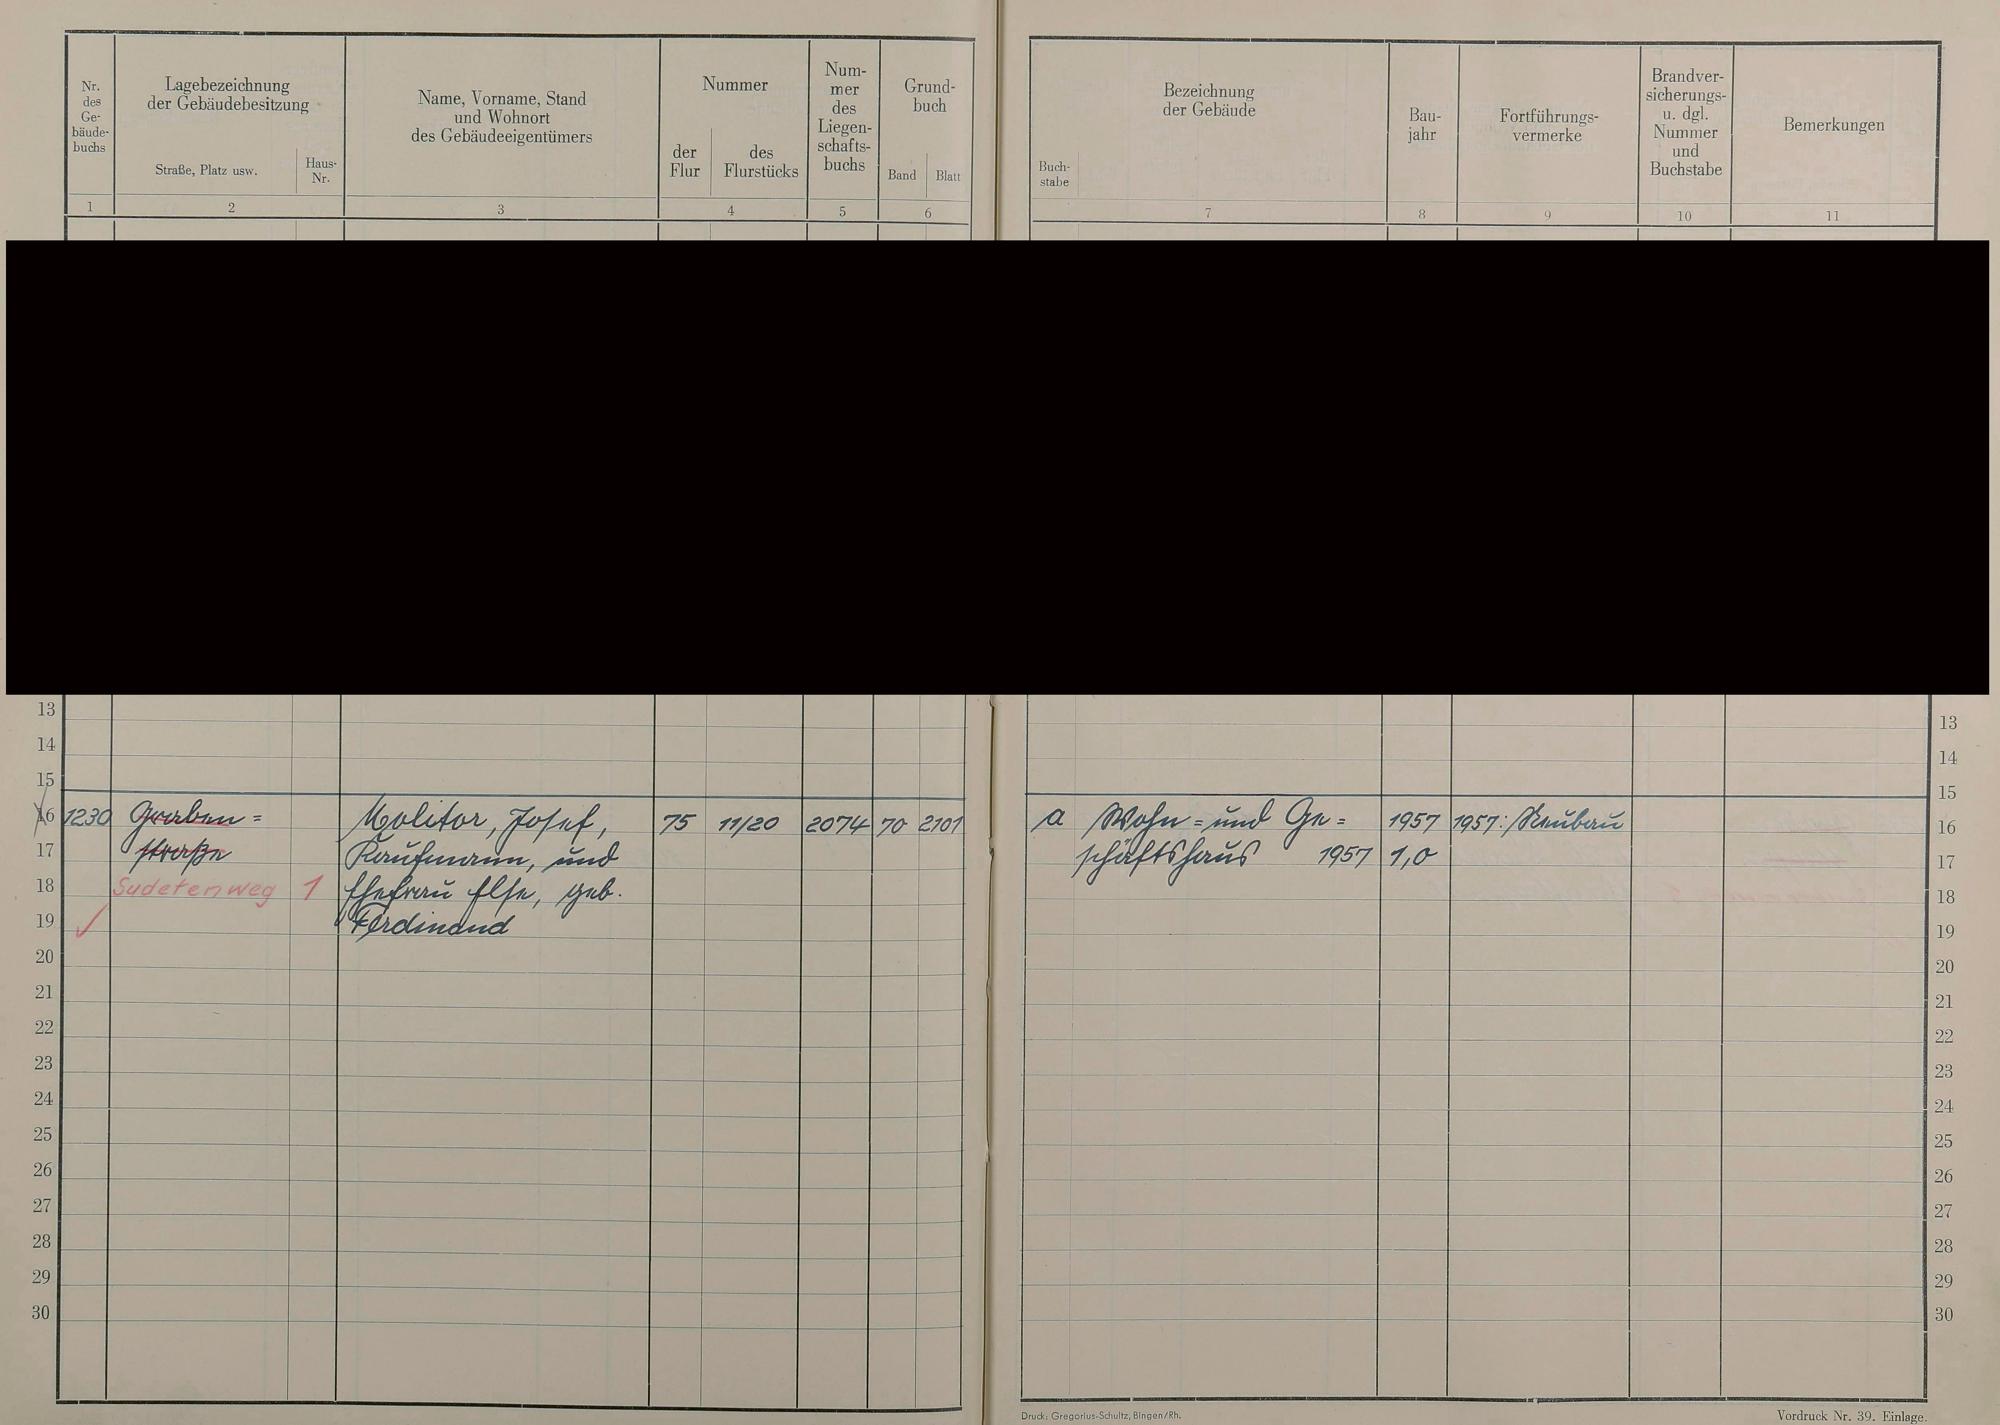 Nr.
des
Ge-
bäude-
buchs
Lagebezeichnung
der Gebäudebesitzung
Straße, Platz usw.
Haus-
Nr.
Name, Vorname, Stand
und Wohnort
des Gebäudeeigentümers
Nummer
der
Flur
des
Flurstücks
Num-
mer
des
Liegen-
schafts-
buchs
Grund-
buch
Band
Blatt
1 2 3 4 5 6
Bezeichnung
der Gebäude
Buch-
stabe
Bau-
jahr
Fortführungs-
vermerke
Brandver-
sicherungs-
u. dgl.
Nummer
und
Buchstabe
Bemerkungen
7 8 9 10 11
13
14
15
16 1230 Graben= Molitor, Josef, 75 11/20 2074 70 2101
17 straße Kaufmann, und
18 Sudetenweg 1 Ehefrau Else, geb.
19 Ferdinand
20
21
22
23
24
25
26
27
28
29
30
13
14
15
a Wohn= und Ge= 1957 1957: Neubau 16
schäftshaus 1957 1,0 17
18
19
20
21
22
23
24
25
26
27
28
29
30
Druck: Gregorius-Schultz, Bingen/Rh.
Vordruck Nr. 39. Einlage.